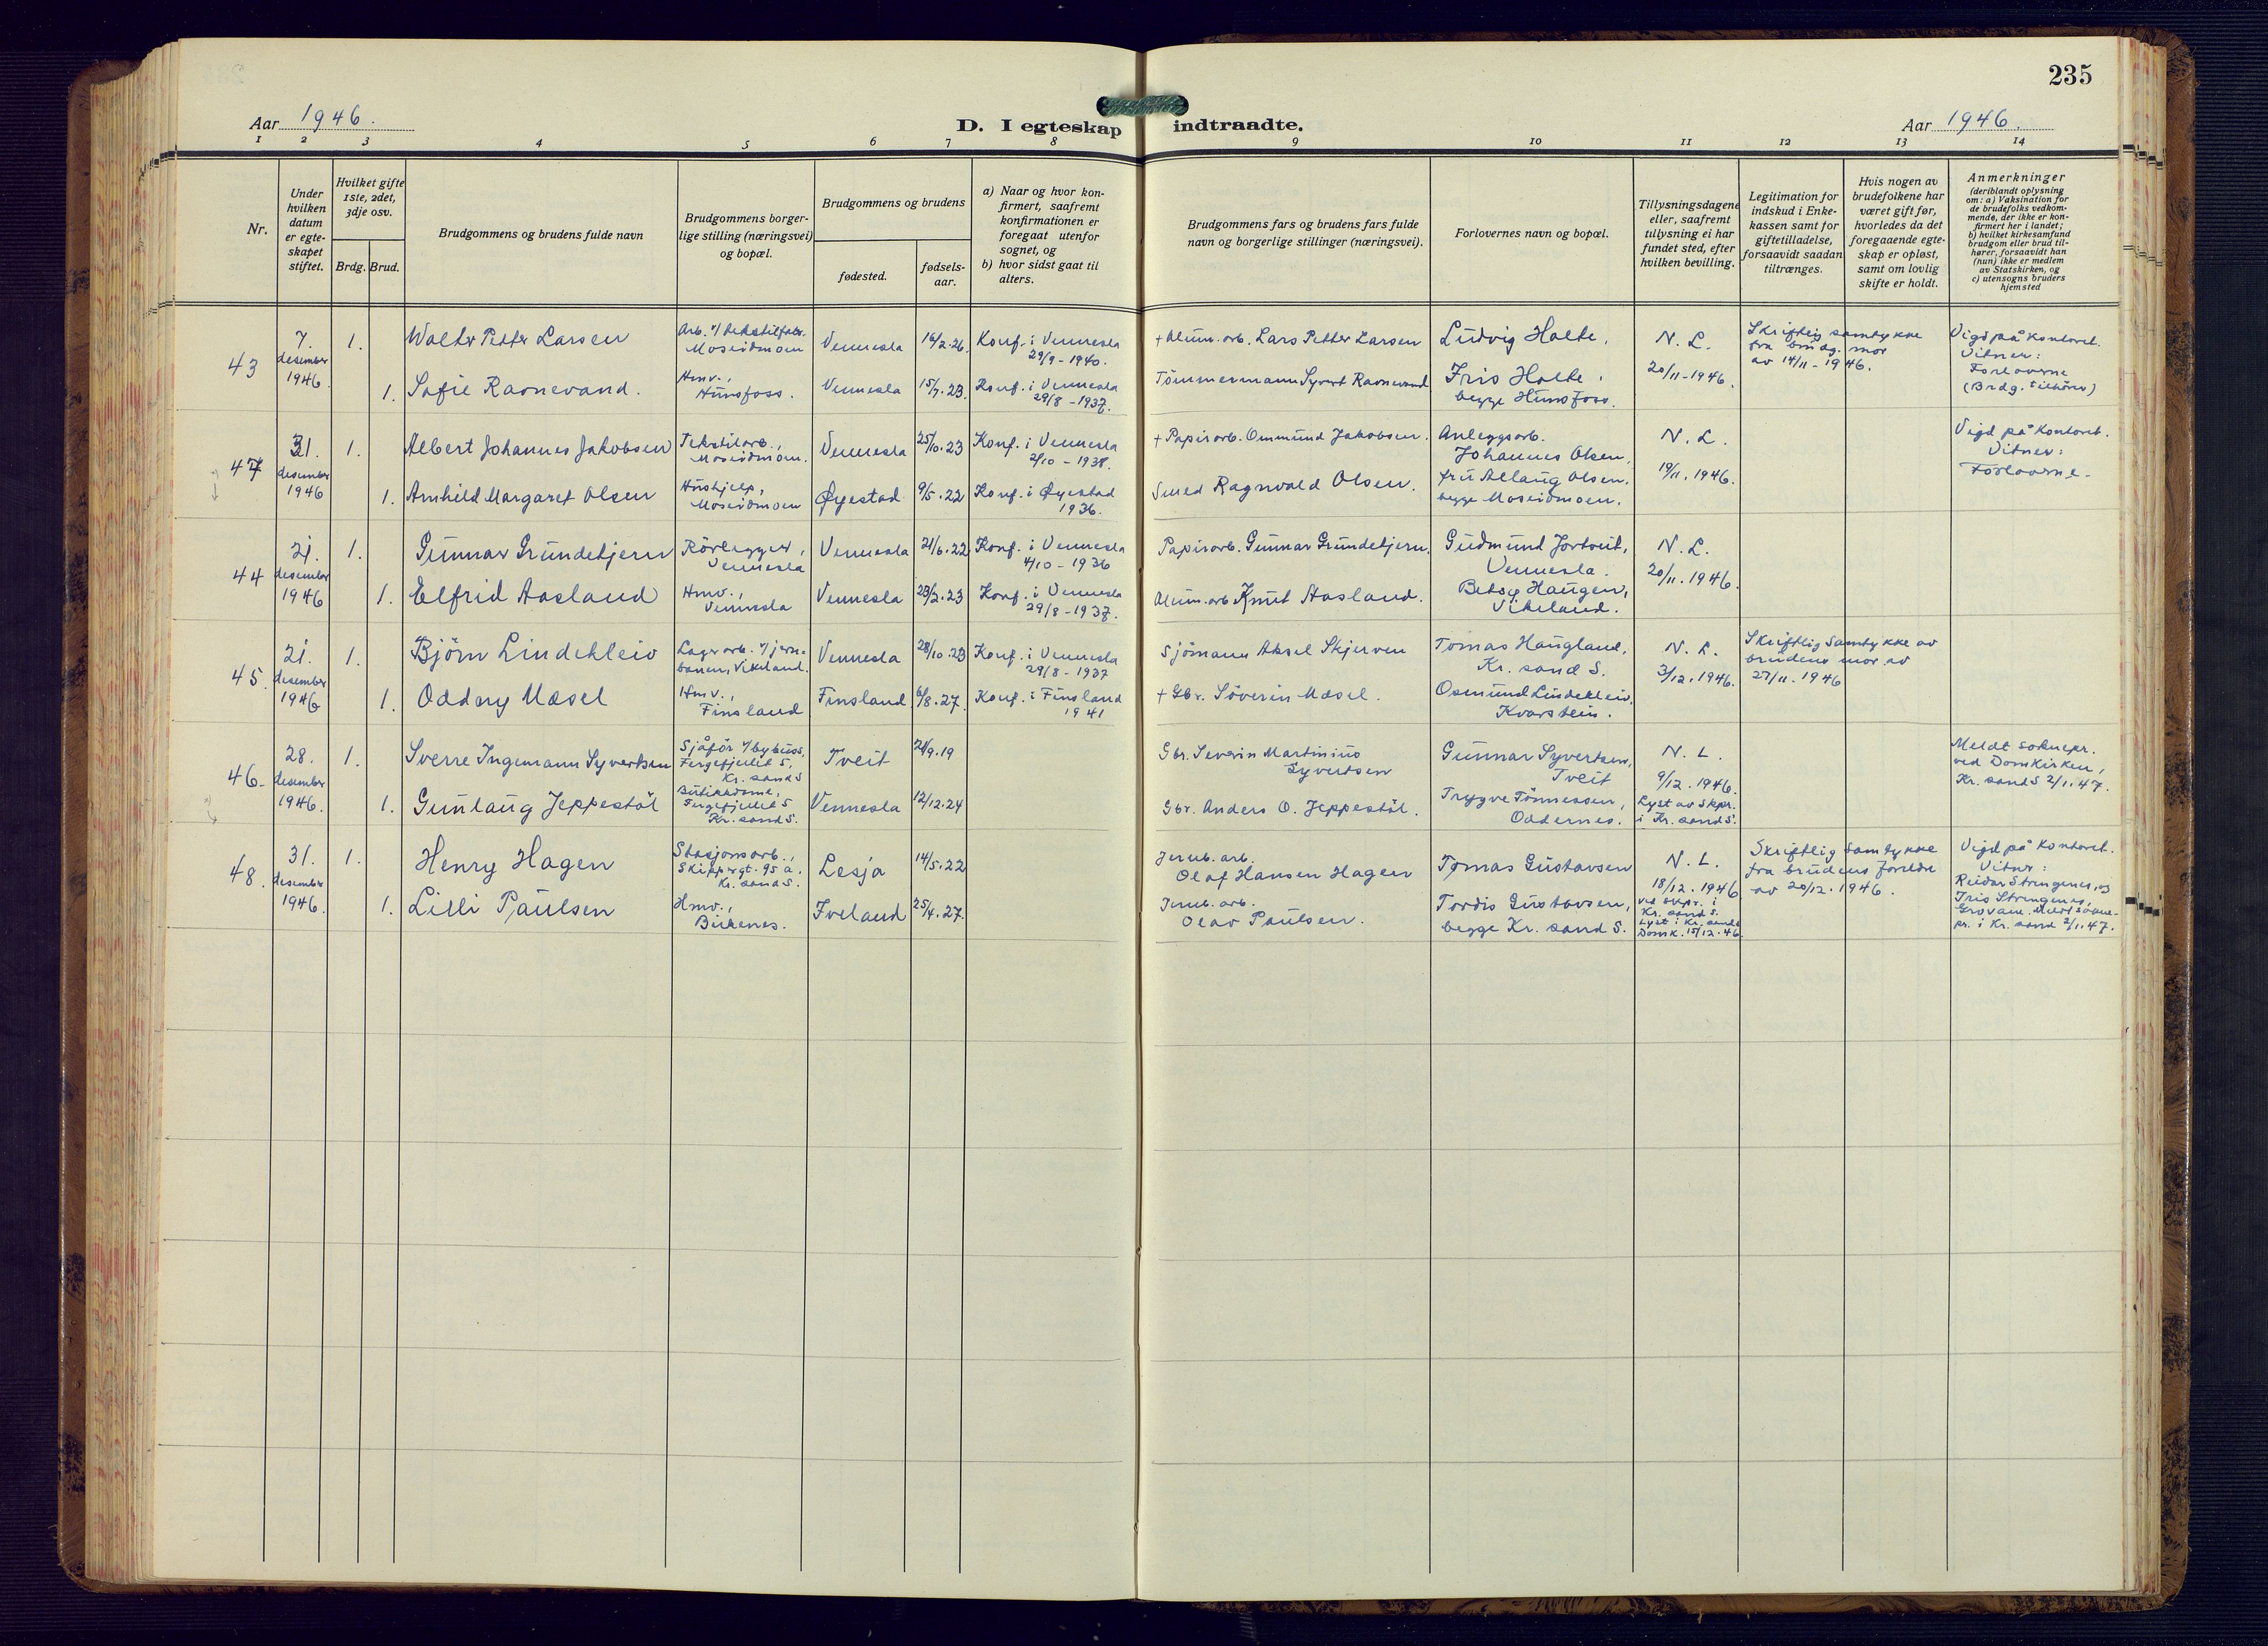 235
Aar 1946.
D. I egteskap indtraadte.
Aar 1946.
1 2 3 4 5 6 7 8 9 10 11 12 13 14
Nr.
Under
hvilken
datum
er egte-
skapet
stiftet.
Hvilket gifte
1ste, 2det,
3dje osv.
Brdg. Brud.
Brudgommens og brudens fulde navn
Brudgommens borger-
lige stilling (næringsvei)
og bopæl.
Brudgommens og brudens
fødested.
fødsels-
aar.
a) Naar og hvor kon-
firmert, saafremt
konfirmationen er
foregaat utenfor
sognet, og
b) hvor sidst gaat til
alters.
Brudgommens fars og brudens fars fulde
navn og borgerlige stillinger (næringsvei).
Forlovernes navn og bopæl.
Tillysningsdagene
eller, saafremt
tillysning ei har
fundet sted, efter
hvilken bevilling.
Legitimation for
indskud i Enke-
kassen samt for
giftetilladelse,
forsaavidt saadan
tiltrænges.
Hvis nogen av
brudefolkene har
været gift før,
hvorledes da det
foregaaende egte-
skap er opløst,
samt om lovlig
skifte er holdt.
Anmerkninger
(deriblandt oplysning
om: a) Vaksination for
de brudefolks vedkom-
mende, der ikke er kon-
firmert her i landet;
b) hvilket kirkesamfund
brudgom eller brud til-
hører, forsaavidt han
(hun) ikke er medlem
av Statskirken, og
c) utensogns bruders
hjemsted
43
7.
desember
1946.
1.
Walter Petter Larsen
Arb. v/ tekstilfabr.
Moseidmoen
Vennesla
16/2.26.
Konf. i Vennesla
29/9-1940.
+ Alum.arb. Lars Petter Larsen
Ludvig Holte.
N. L.
20/11-1946.
Skriftlig samtykke
fra brudg. mor
av 14/11-1946.
Vigd på kontoret.
Vitner:
Forloverne
(Brdg. tilhörer)
1.
Sofie Ravnevand.
Hmv.,
Hunsfoss.
Vennesla
15/7.23.
Konf. i Vennesla
29/8-1937.
Tömmermann Syvert Ravnevand
Iris Holte.
begge Hunsfoss.
47
31.
desember
1946
1.
Albert Johannes Jakobsen
Tekstilarb.,
Moseidmoen.
Vennesla
25/10.23
Konf. i Vennesla
2/10-1938.
+ Papirarb. Ommund Jakobsen.
Anleggsarb.
Johannes Olsen,
N. L.
19/11.1946.
Vigd på kontoret.
Vitner:
Forloverne.
1.
Arnhild Margaret Olsen
Hushjelp,
Moseidmoen
Øyestad
9/5.22
Konf. i Øyestad
1936.
Smed Ragnvald Olsen.
fru Aslaug Olsen,
begge Moseidmoen.
44
21.
desember
1946
1.
Gunnar Grundetjern
Rörlegger,
Vennesla
Vennesla
21/6.22
Konf. i Vennesla
4/10-1936
Papirarb. Gunnar Grundetjern.
Gudmund Jortveit,
Vennesla.
N. L.
20/11.1946.
1.
Elfrid Aasland
Hmv.,
Vennesla
Vennesla
23/2.23
Konf. i Vennesla
29/8-1937.
Alum.arb Knut Aasland.
Betsy Haugen,
Vikeland.
45.
21.
desember
1946
1.
Björn Lindekleiv
Lagerarb. v/ jern-
banen, Vikeland.
Vennesla
28/10.23
Konf. i Vennesla
29/8-1937
Sjömann Aksel Skjerven
Tomas Haugland,
Kr. sand S.
N. L.
3/12.1946.
Skriftlig samtykke av
brudens mor av
27/11.1946
1.
Oddny Mæsel
Hmv.,
Finsland
Finsland
6/8.27.
Konf. i Finsland
1941
+ Gbr. Söverin Mæsel.
Osmund Lindekleiv,
Kvarstein.
46.
28.
desember
1946.
1.
Sverre Ingemann Syvertsen
Sjåför v/ bybuss,
Fergefjellet 5,
Kr. sand S
Tveit
21/9.19
Gbr. Severin Martinius
Syvertsen
Gunnar Syvertsen,
Tveit
N. L.
9/12.1946.
Lyst av Skpr.
i Kr. sand S.
Meldt soknepr.
ved Domkirken,
Kr. sand S 2/1.47.
1.
Gunlaug Jeppestöl
Butikkdame,
Fergefjellet 5
Kr. sand S.
Vennesla
12/12.24
Gbr. Anders O. Jeppestöl.
Trygve Tönnessen,
Oddernes.
48.
31.
desember
1946.
1.
Henry Hagen
Stasjonsarb.,
Skippergt. 95 a,
Kr. sand S.
Lesja
14/5.22
Jernb. arb.
Olaf Hansen Hagen
Tomas Gustavsen
N. L.
18/12.1946
Kr. sand S.
Lyst i Kr. sand
Domk. 15/12.46.
Skriftlig samtykke
fra brudens foreldre
av 20/12.1946.
Vigd på kontoret.
Vitner:
Reidar Strengenes, og
Iris Strengenes,
Grovane. Meldt sokne-
pr. i Kr. sand 2/1.47.
1.
Lilli Paulsen
Hmv.,
Birkenes.
Iveland
25/4.27.
Jernb. arb.
Olav Paulsen.
Tordis Gustavsen,
begge Kr. sand S.